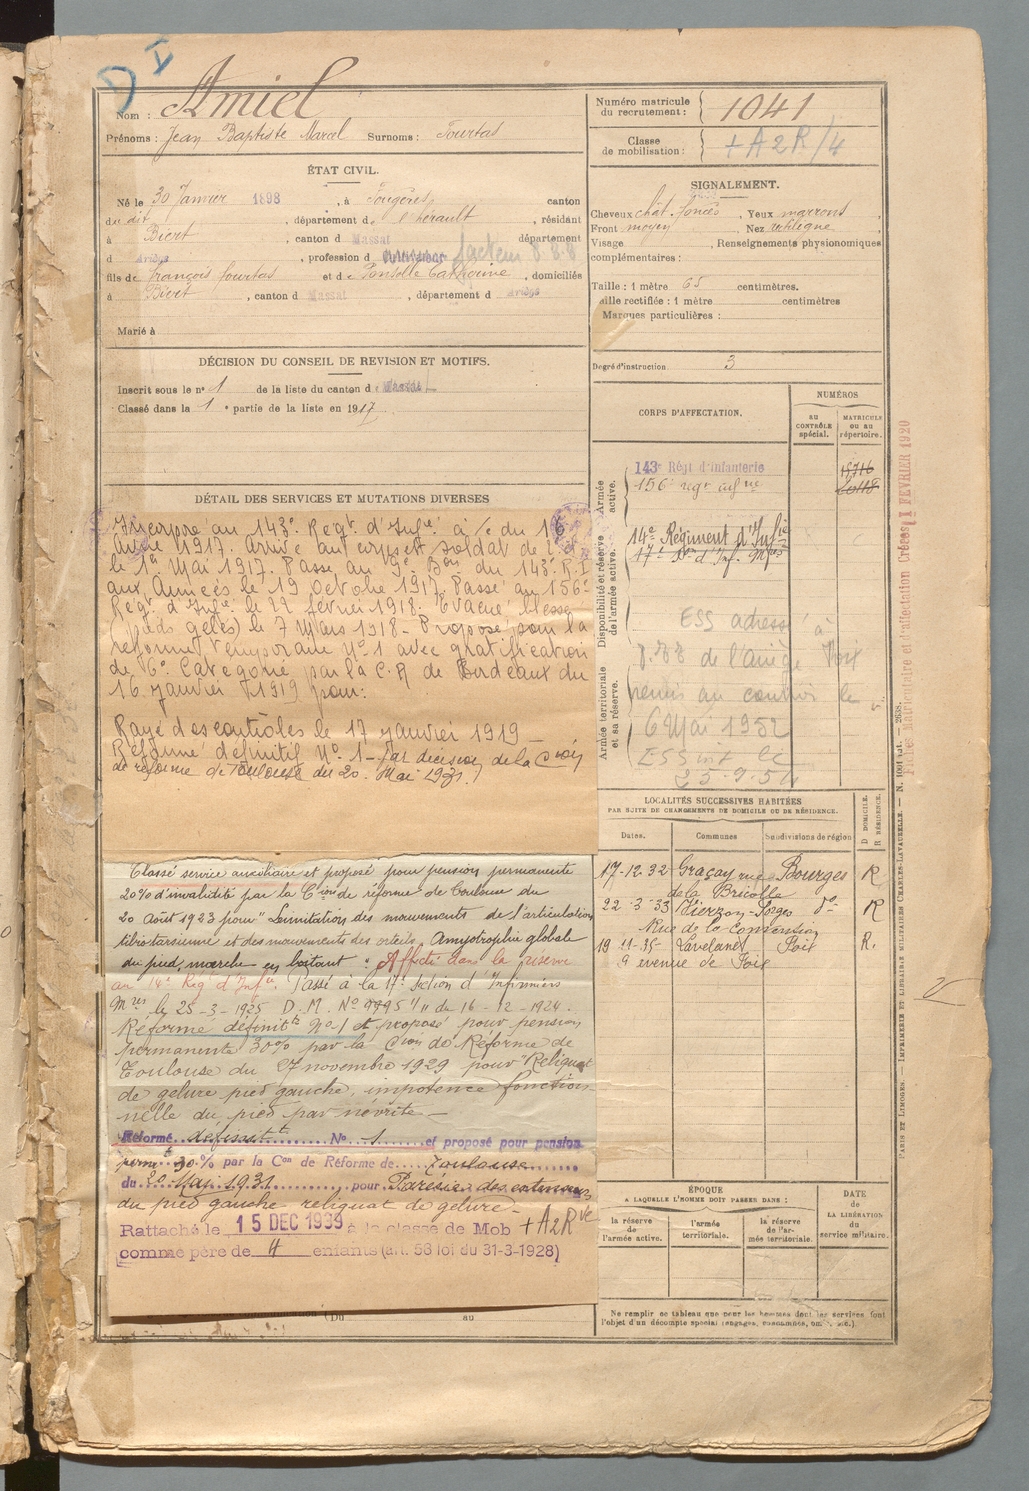 D I
Nom : Amiel
Prénoms : Jean Baptiste Marcel Surnoms : Fourtas
ÉTAT CIVIL.
Né le 30 Janvier 1898, à Fougères canton
du dit, département de l'hérault, résidant
à Biert, canton d Massat département
d Ariège, profession d Cultivateur facteur
fils de François Fourtas et de Ponsolle Catherine, domiciliés
à Biert, canton d Massat, département d Ariège
Marié à
DÉCISION DU CONSEIL DE REVISION ET MOTIFS.
Inscrit sous le n° 1 de la liste du canton d Massat
Classé dans la 1e partie de la liste en 1917
DÉTAIL DES SERVICES ET MUTATIONS DIVERSES
Incorporé au 143e Regt d'Infie à /c du 16
Avril 1917. Arrivé au corps et soldat de 2e cl
le 1er Mai 1917. Passé au 9e Bon du 143e R.I
aux Armées le 19 Octobre 1917. Passé au 156e
Regt d'Infie le 22 février 1918. Evacué blessé
(pieds gelés) le 7 Mars 1918 - Proposé pour la
réforme temporaire N°1 avec gratification
de 6e Catégorie par la C.R de Bordeaux du
16 janvier 1919 pour:
Rayé des contrôles le 17 janvier 1919 -
Réformé définitif N° 1 - par décision de la Cion
de réforme de Toulouse du 20 Mai 1931.
Classé service auxiliaire et proposé pour pension permanente
20% d'invalidité par la Cion de réforme de Toulouse du
20 Août 1923 pour " Limitation des mouvements de l'articulation
tibio tarsienne et des mouvements des orteils. Amyotrophie globale
du pied, marche en boitant " Affecté dans la réserve
au 14e Rég d'Infie. Passé à la 17e Section d'Infirmiers
Mres le 25-3-1925 D.M. N° 9995 1/11 du 16-12-1924.
Réformé définitt N°1 et proposé pour pension
permanente 30% par la Cion de Réforme de
Toulouse du 27 novembre 1929 pour "Reliquat
de gelure pied gauche, impotence fonction
nelle du pied par névrite -
Réformé définitt N° 1 et proposé pour pension
permte 30 % par la Con de Réforme de Toulouse
du 20 Mai 1931 pour Parésie des extenseurs
du pied gauche reliquat de gelure -
Rattaché le 15 DEC 1939 à la classe de Mob + A2Rve
comme père de 4 enfants (art. 58 loi du 31-3-1928)
(Du au
Numéro matricule du recrutement : 1041
Classe de mobilisation : + A2R/4
SIGNALEMENT.
Cheveux chât. foncés, Yeux marrons,
Front moyen, Nez rectiligne,
Visage, Renseignements physionomiques
complémentaires :
Taille : 1 mètre 65 centimètres.
Taille rectifiée : 1 mètre centimètres
Marques particulières :
Degré d'instruction. 3
CORPS D'AFFECTATION.
NUMÉROS
AU CONTRÔLE spécial.
MATRICULE ou au répertoire.
Armée active.
143e Régt d'Infanterie
156e regt infie
Disponibilité et réserve de l'armée active.
14e Régiment d'Infie
17e Son d'Inf. Mres
Armée territoriale et sa réserve.
ESS adressé à
de l'Ariège Foix
remis au controi le
6 Mai 1952
ESS int le
25-9-54
LOCALITÉS SUCCESSIVES HABITÉES
PAR SUITE DE CHANGEMENTS DE DOMICILE OU DE RÉSIDENCE.
Dates. Communes Subdivisions de région D DOMICILE. R RÉSIDENCE.
17-12-32 Graçay rue Bourges R
de la Bricolle
22-3-33 Vierzon-Forges do R
Rue de la Convention
19 11-35- Lavelanet Foix R.
9 avenue de Foix
ÉPOQUE
A LAQUELLE L'HOMME DOIT PASSER DANS :
la réserve de l'armée active.
l'armée territoriale.
la réserve de l'armée territoriale.
DATE de LA LIBÉRATION du service militaire.
Ne remplir ce tableau que pour les hommes dont les services font
l'objet d'un décompte spécial (engagés, condamnés, omis, etc.).
PARIS ET LIMOGES. — IMPRIMERIE ET LIBRAIRIE MILITAIRES CHARLES-LAVAUZELLE. —
Matriculaire et d'affectation Créées 1 FEVRIER 1920